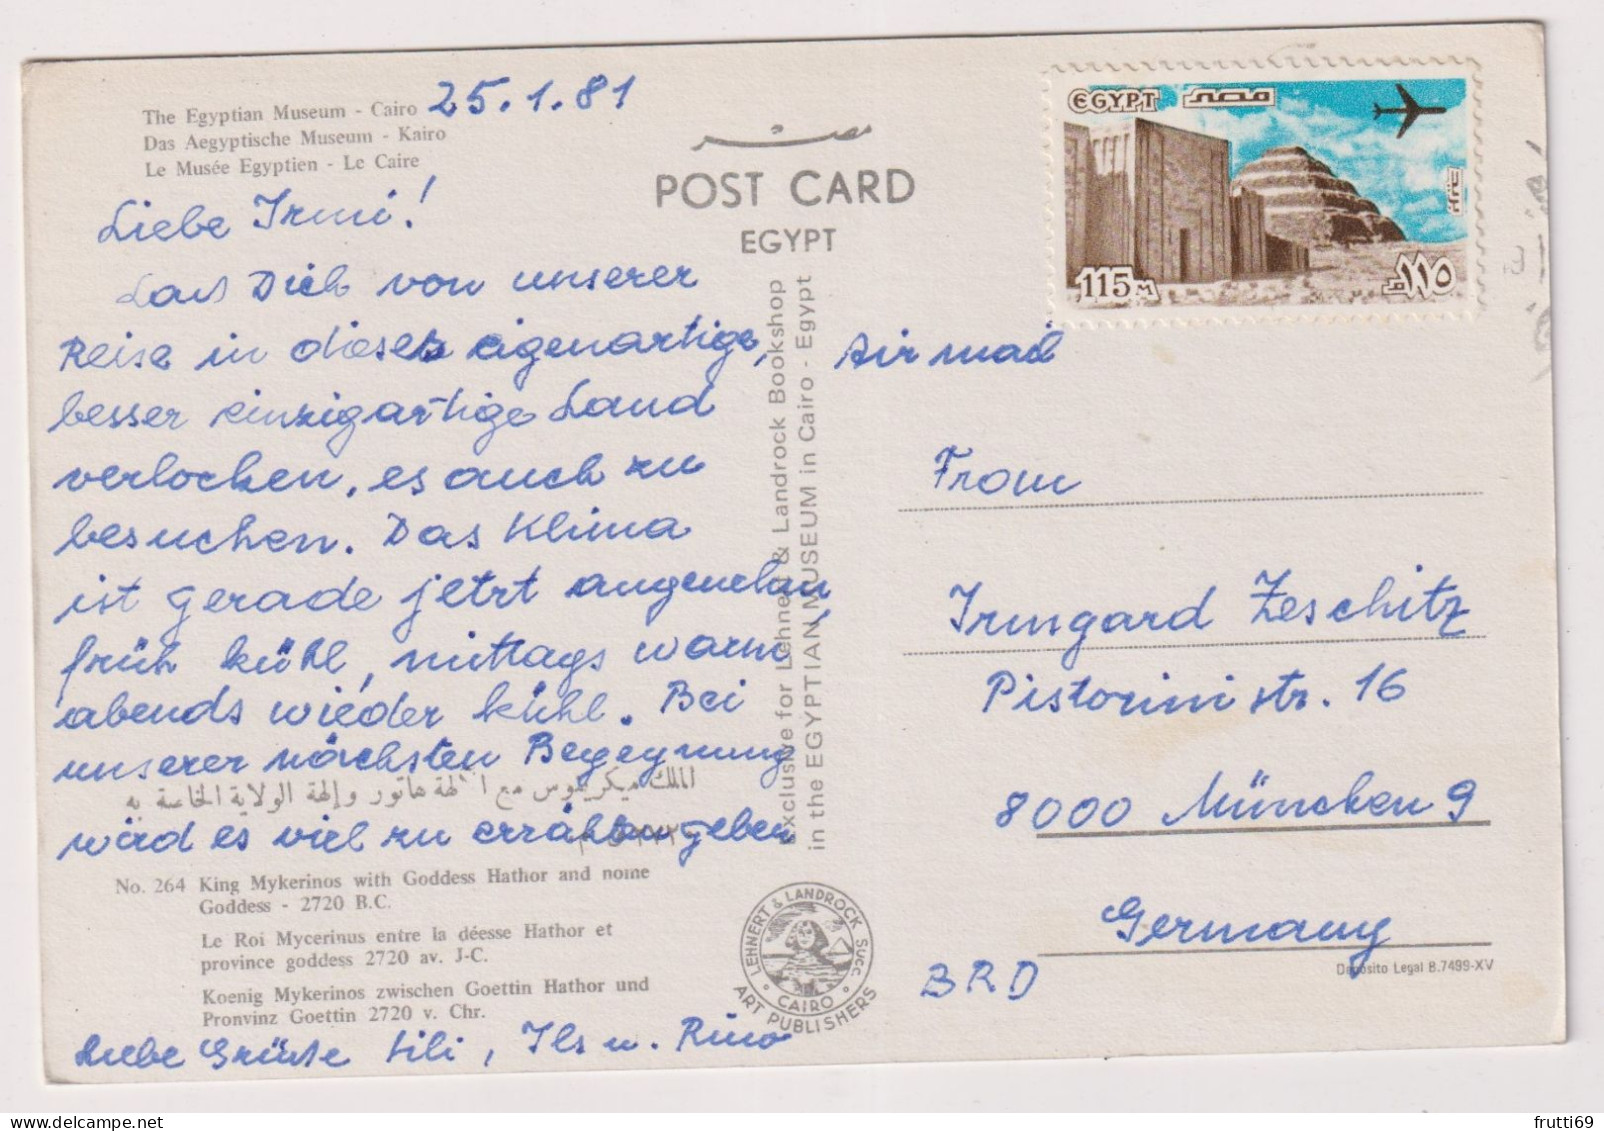 The Egyptian Museum - Cairo 25.1.81
Das Aegyptische Museum - Kairo
Le Musée Egyptien - Le Caire
Liebe Irmi!
Lass Dich von unserer
Reise in dieses eigenartige,
besser einzigartige Land
verlocken, es auch zu
besuchen. Das Klima
ist gerade jetzt angenehm,
früh kühl, mittags warm,
abends wieder kühl. Bei
unserer nächsten Begegnung
الملك ميكرينوس مع الآلهة هاتور وإلهة الولاية الخاصة به
wird es viel zu erzählen geben
No. 264 King Mykerinos with Goddess Hathor and nome
Goddess - 2720 B.C.
Le Roi Mycerinus entre la déesse Hathor et
province goddess 2720 av. J-C.
Koenig Mykerinos zwischen Goettin Hathor und
Pronvinz Goettin 2720 v. Chr.
Liebe Grüsse Lili, Ils u. Rino
مصر
POST CARD
EGYPT
Exclusive for Lehnert & Landrock Bookshop
in the EGYPTIAN MUSEUM in Cairo - Egypt
LEHNERT & LANDROCK SUCC.
CAIRO
ART PUBLISHERS
EGYPT مصر
115M ١١٥م
Air mail
Frau
Irmgard Zeschitz
Pistorinistr. 16
8000 München 9
Germany
BRD
Deposito Legal B.7499-XV
My.delcampe.net
frutti69